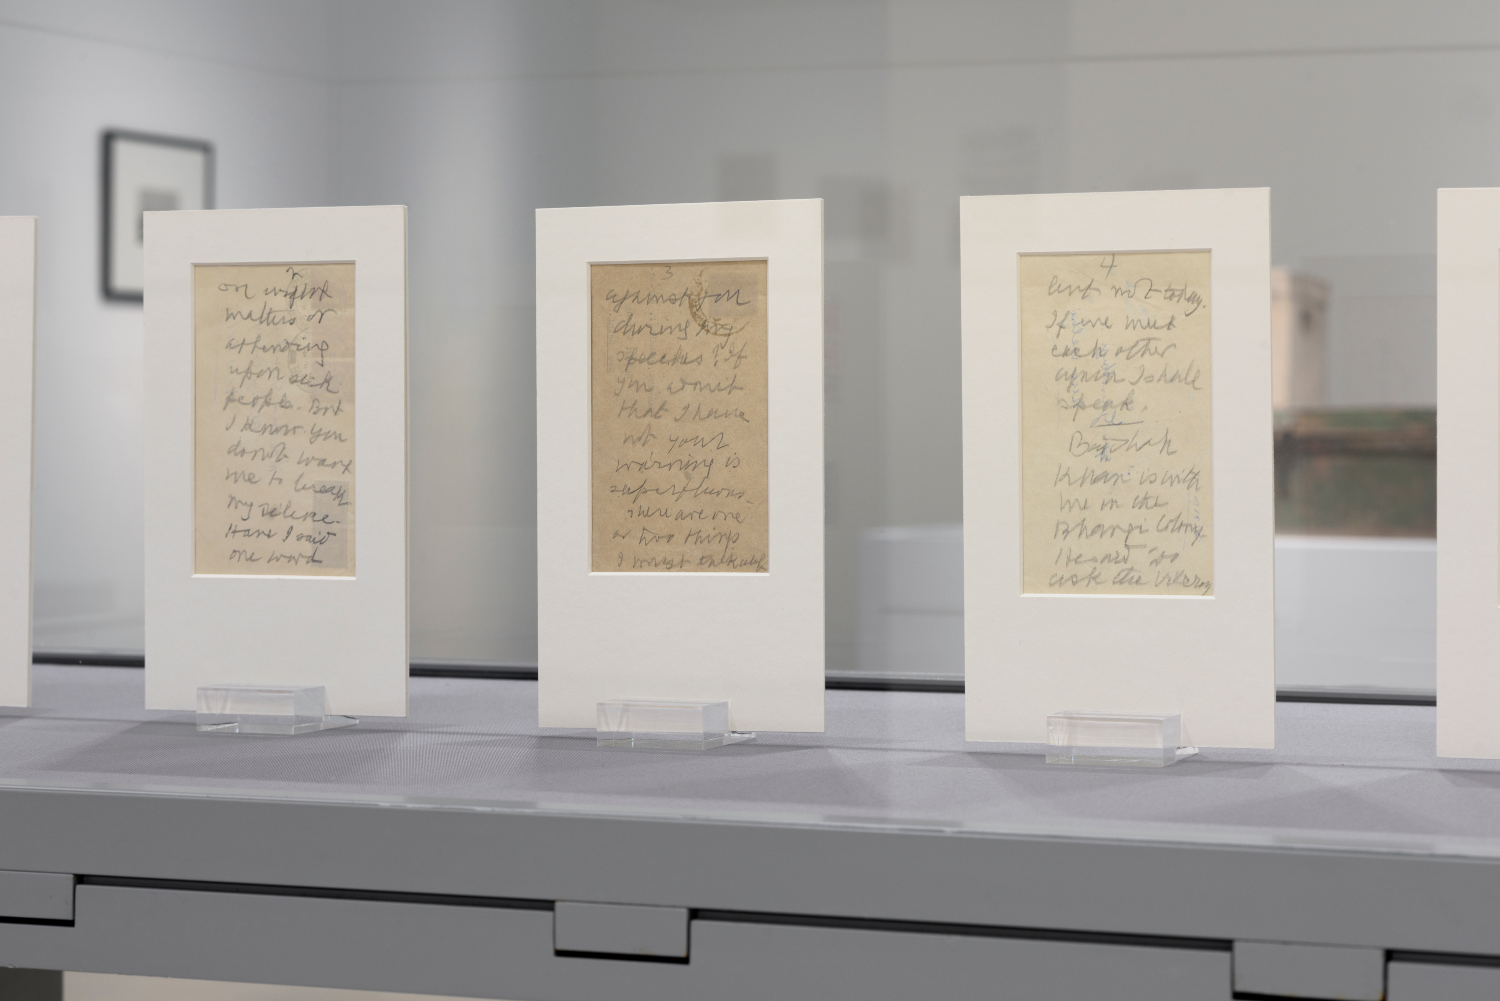 2
on urgent
matters or
attending
upon sick
people. But
I know you
do not want
me to break
my silence.
Have I said
one word
3
against you
during my
speeches? If
you admit
that I have
not your
warning is
superfluous.
There are one
or two things
I must talk about
4
but not today.
If we meet
each other
again I shall
speak.
Badshah
Khan is with
me in the
Bhangi Colony
He said "do
ask the Viceroy